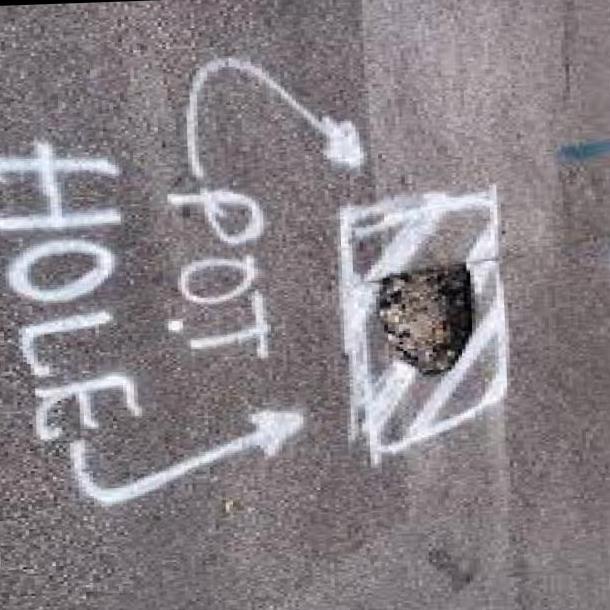 POT
HOLE